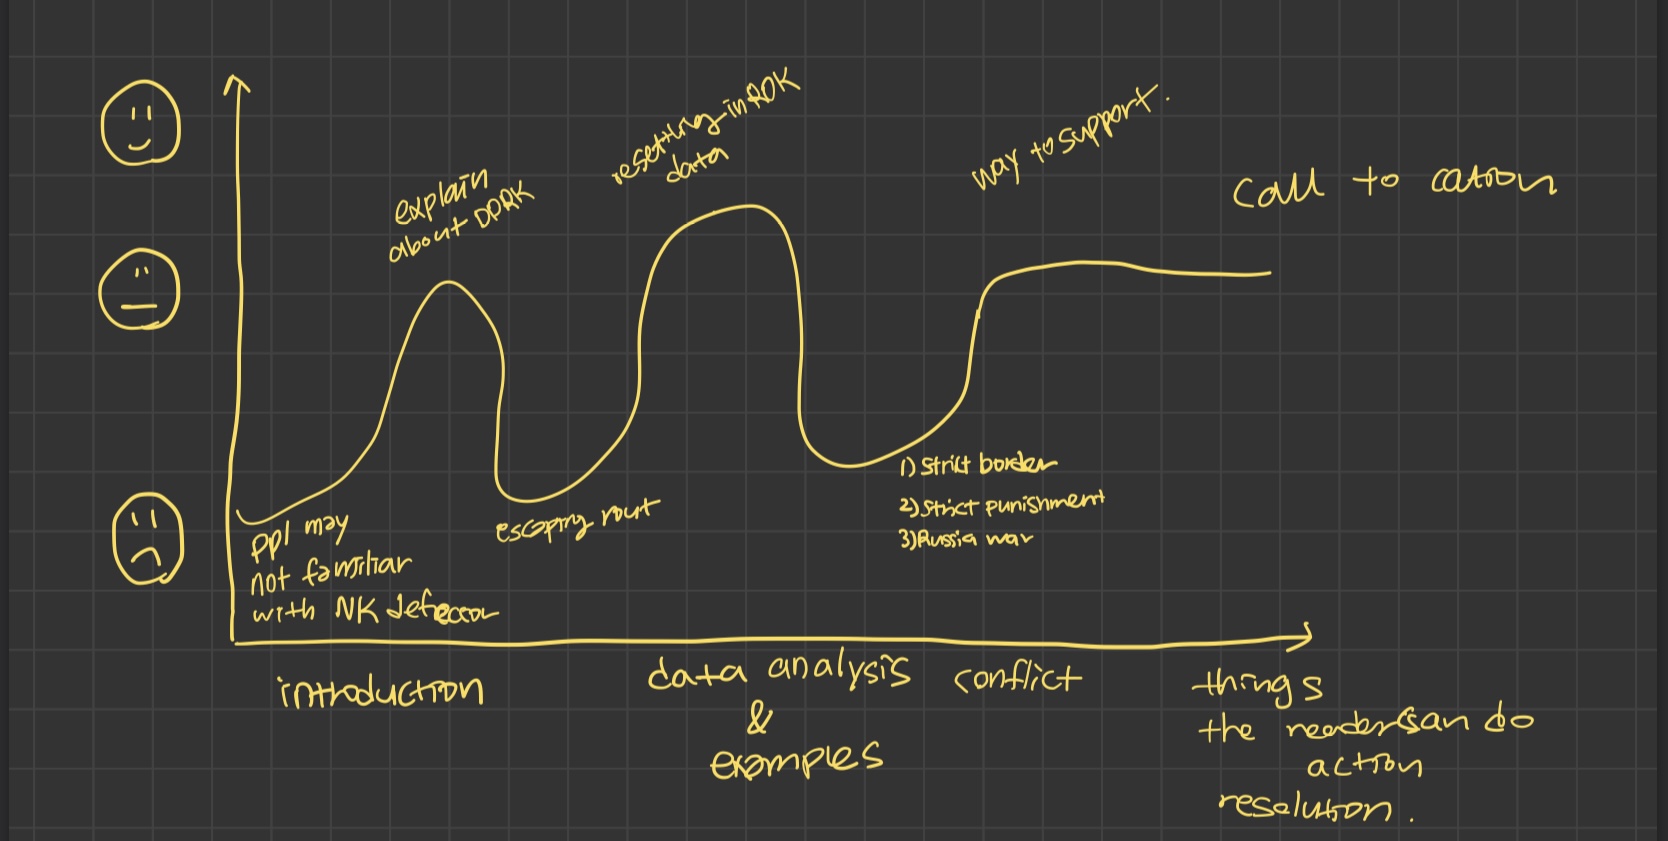 explain
about DPRK
resettling in ROK
data
way to support.
Call to cation
ppl may
not familiar
with NK defector
escaping rout
1) Strict border
2) Strict punishment
3) Russia war
introduction
data analysis
&
examples
conflict
things
the readers can do
action
resolution.